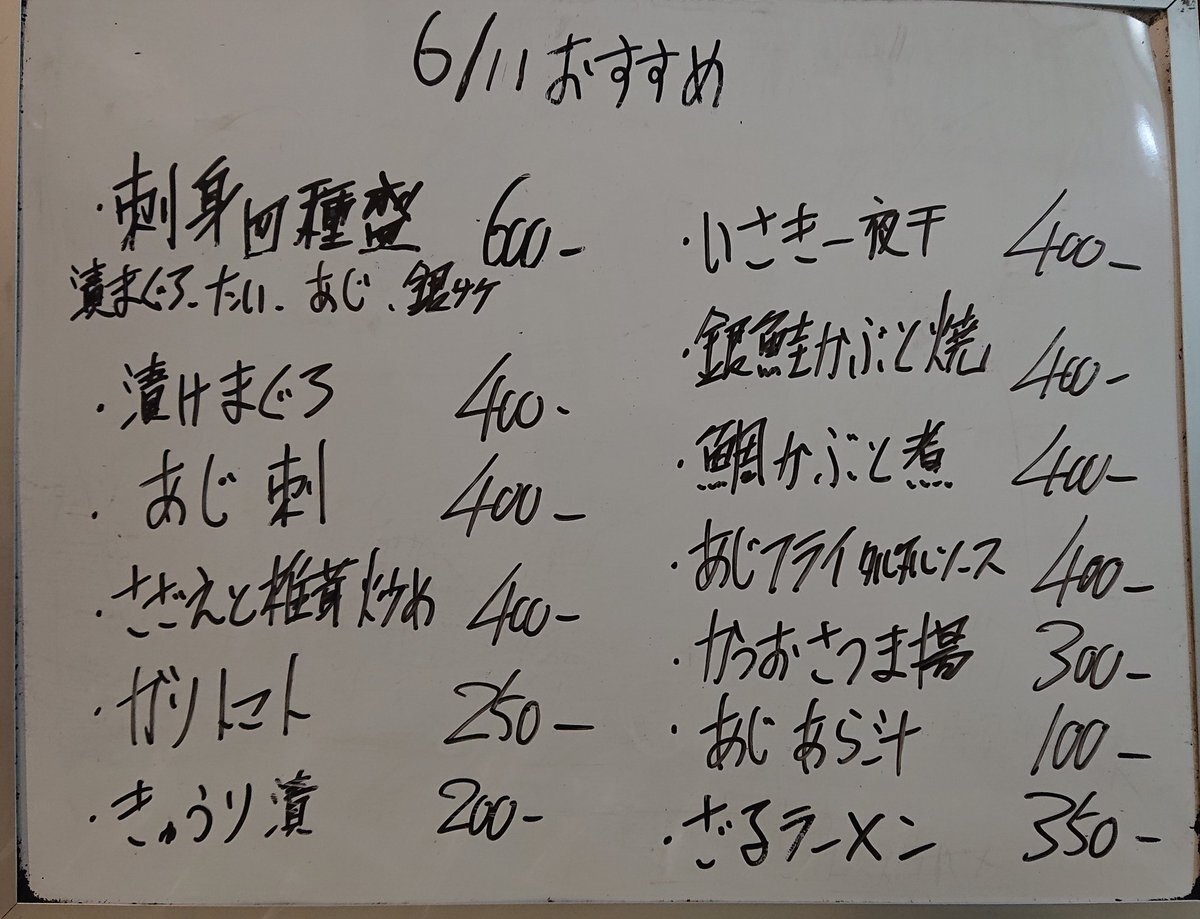 6/11 おすすめ
・刺身四種盛 600-
漬まぐろ、たい、あじ、銀サケ
・漬けまぐろ 400-
・あじ刺 400-
・さざえと椎茸炒め 400-
・ガリトマト 250-
・きゅうり漬 200-
・いさき一夜干 400-
・銀鮭かぶと焼 400-
・鯛かぶと煮 400-
・あじフライタルタルソース 400-
・かつおさつま揚 300-
・あじあら汁 100-
・ざるラーメン 350-